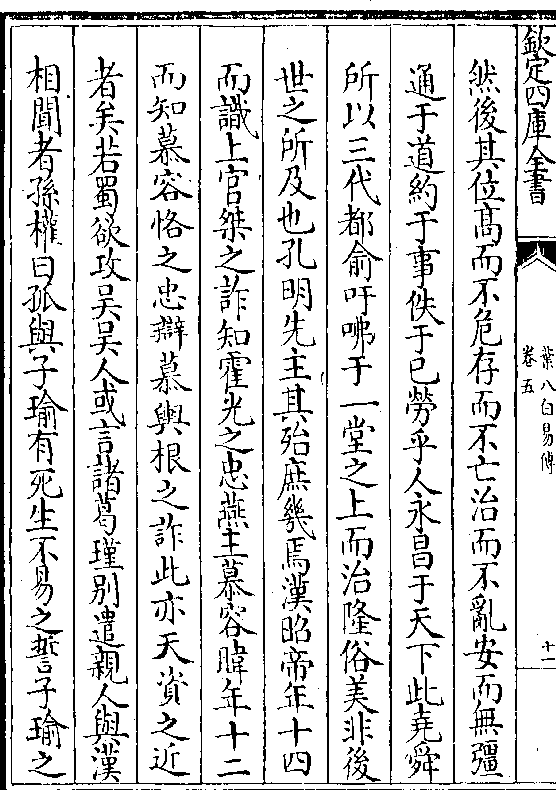 欽定四庫全書
葉八白易傳
卷五
十一
然後其位髙而不危存而不亡治而不亂安而無彊
通于道約于事佚于已勞乎人永昌于天下此堯舜
所以三代都俞吁咈于一堂之上而治隆俗美非後
世之所及也孔明先主其殆庶幾焉漢昭帝年十四
而識上官桀之詐知霍光之忠燕主慕容暐年十二
而知慕容恪之忠辯慕輿根之詐此亦天資之近
者矣若蜀欲攻吳吳人或言諸葛瑾别遣親人與漢
相聞者孫權曰孤與子瑜有死生不易之誓子瑜之